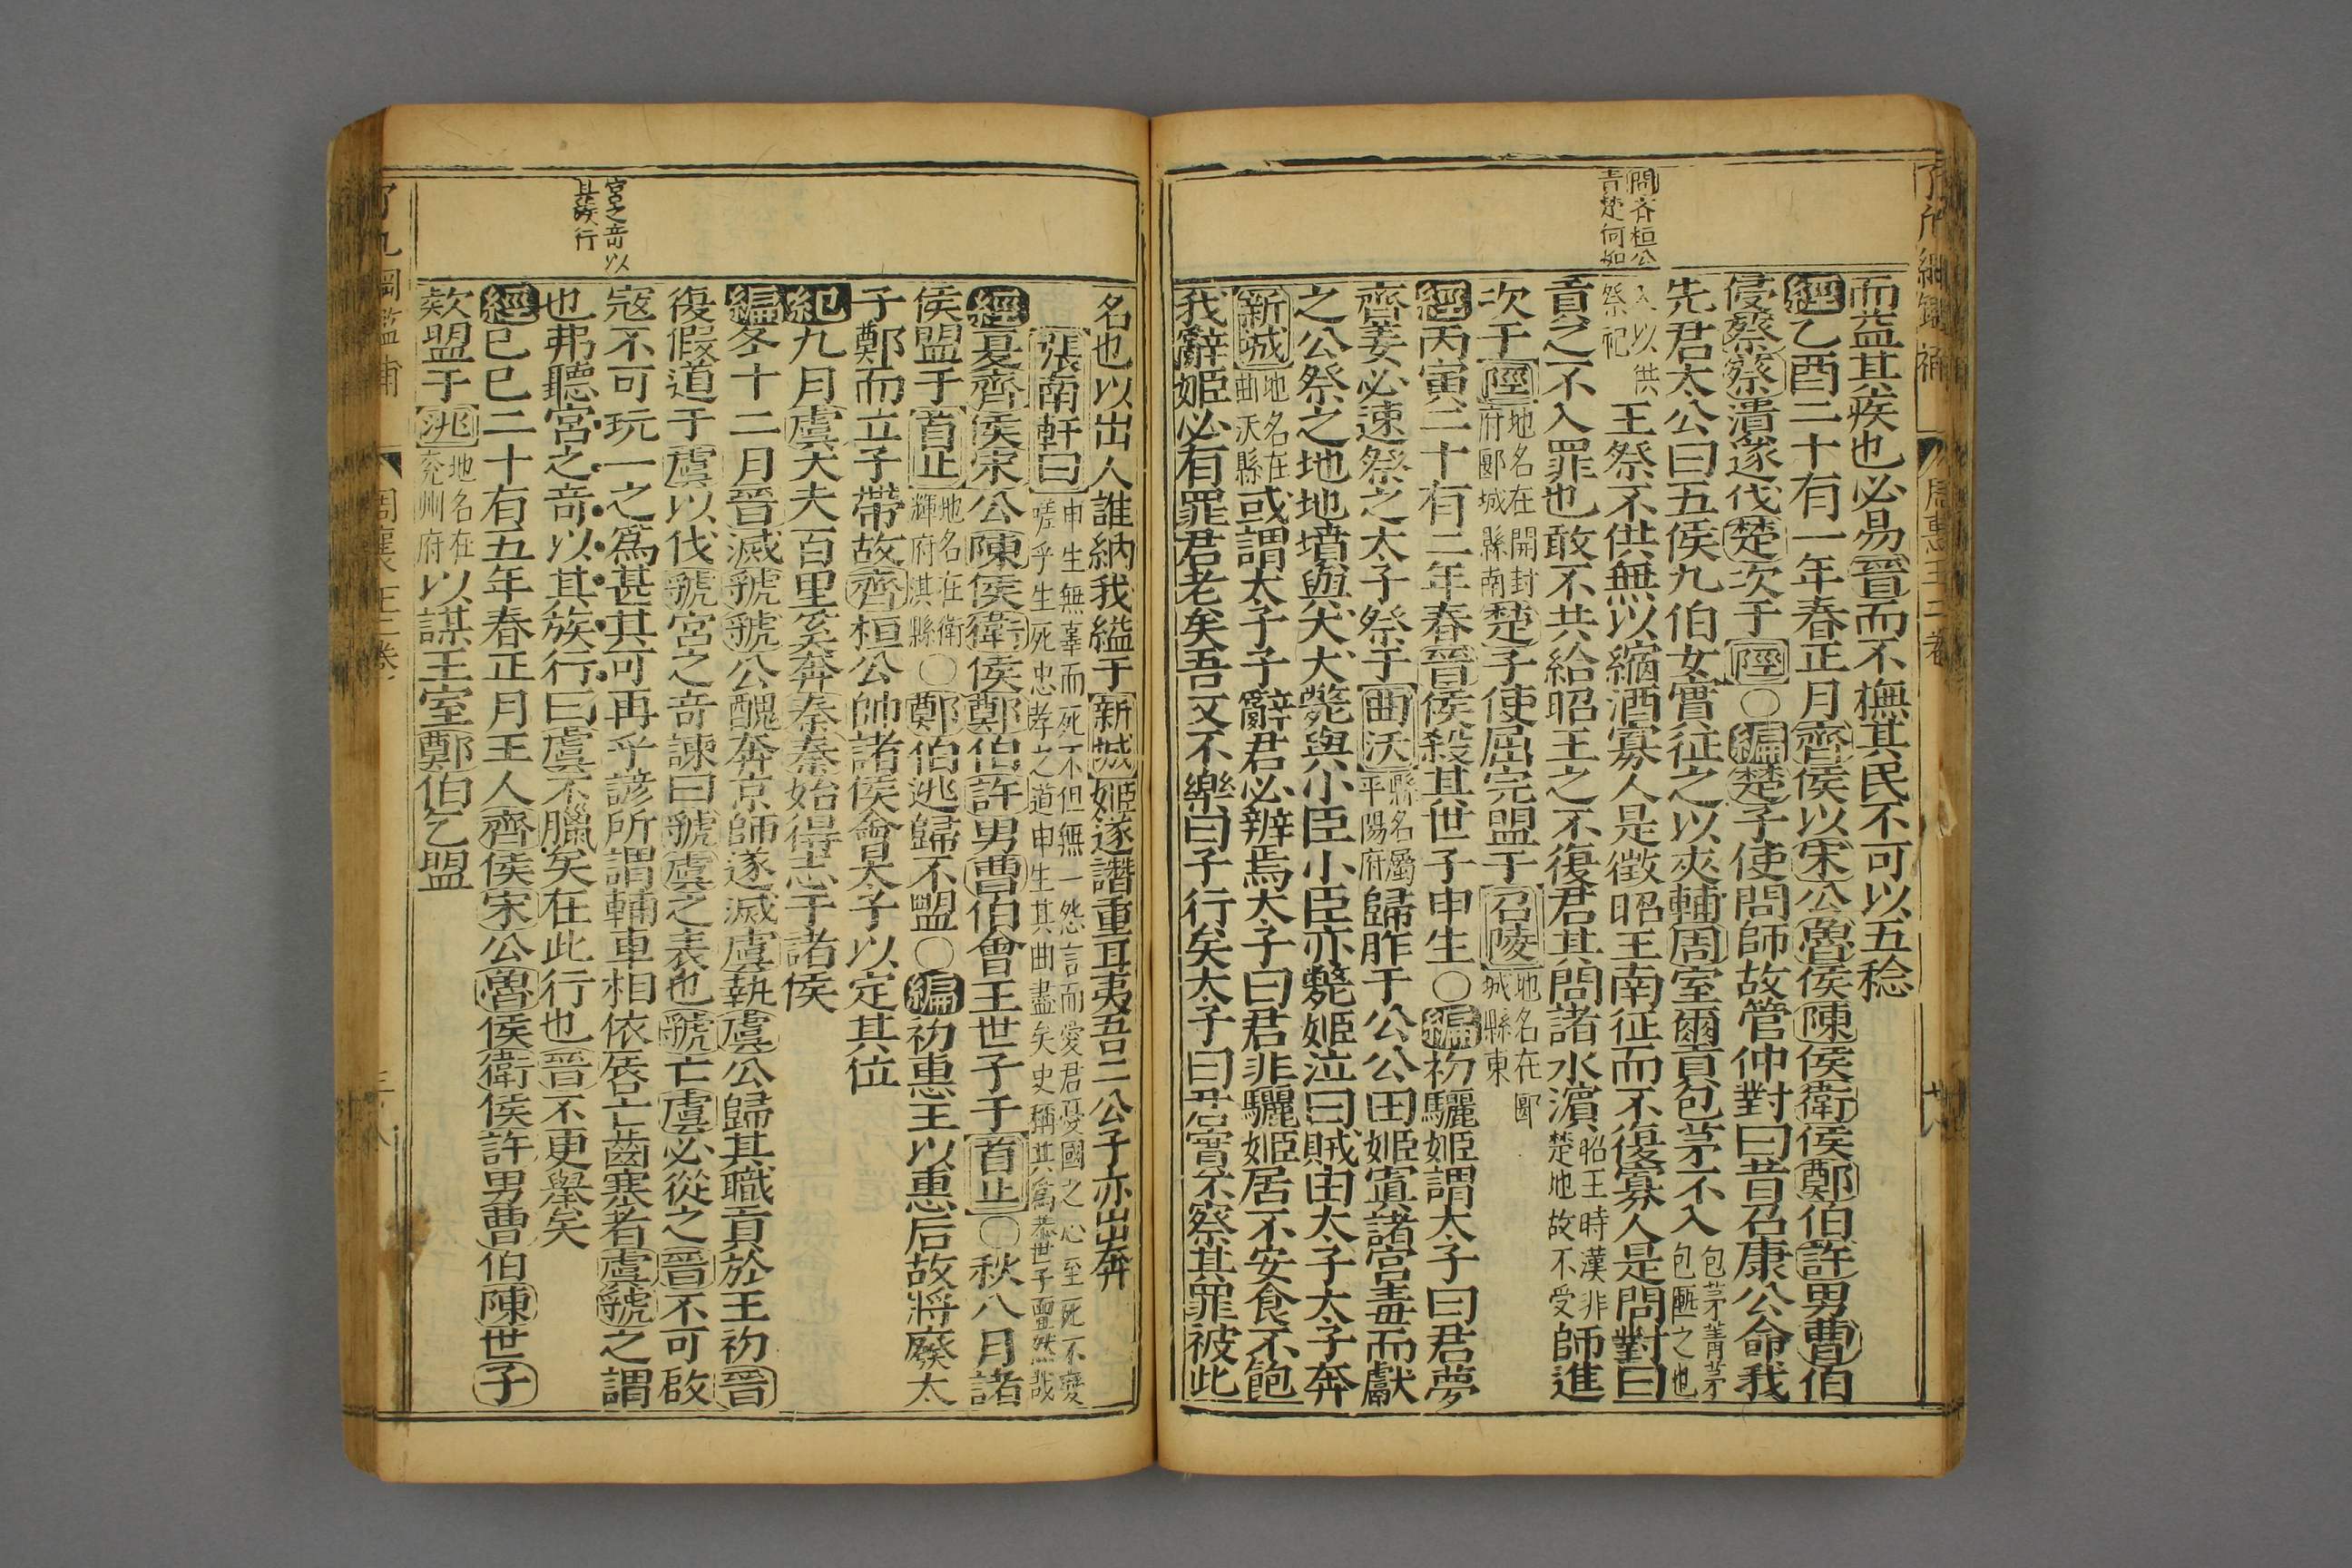 問齊桓公
責楚何如
而益其疾也必易晉而不撫其民不可以五稔
經乙酉二十有一年春正月齊侯以宋公魯侯陳侯衛侯鄭伯許男曹伯
侵蔡蔡潰遂伐楚次于陘○編楚子使問師故管仲對曰昔召康公命我
先君太公曰五侯九伯女實征之以夾輔周室爾貢包茅不入包茅菁茅包匭之也
入以供祭祀王祭不供無以縮酒寡人是徵昭王南征而不復寡人是問對曰
貢之不入罪也敢不共給昭王之不復君其問諸水濱昭王時漢非楚地故不受師進
次于陘地名在開封府郾城縣南楚子使屈完盟于召陵地名在郾城縣東
經丙寅二十有二年春晉侯殺其世子申生○編初驪姬謂太子曰君夢
齊姜必速祭之太子祭于曲沃縣名屬平陽府歸胙于公公田姬寘諸宮毒而獻
之公祭之地地墳與犬犬斃與小臣小臣亦斃姬泣曰賊由太子太子奔
新城地名在曲沃縣或謂太子子辭君必辨焉太子曰君非驪姬居不安食不飽
我辭姬必有罪君老矣吾又不樂曰子行矣太子曰君實不察其罪被此
名也以出人誰納我縊于新城姬遂譖重耳夷吾二公子亦出奔
張南軒曰申生無辜而死不但無一怨言而愛君憂國之心至死不變嗟乎生死忠孝之道申生其曲盡矣史稱其為恭世子亶然哉
經夏齊侯宋公陳侯衛侯鄭伯許男曹伯會王世子于首止○秋八月諸
侯盟于首止地名在衛輝府淇縣○鄭伯逃歸不盟○編初惠王以惠后故將廢太
子鄭而立子帶故齊桓公帥諸侯會太子以定其位
紀九月虞大夫百里奚奔秦秦始得志于諸侯
編冬十二月晉滅虢虢公醜奔京師遂滅虞執虞公歸其職貢於王初晉
復假道于虞以伐虢宮之奇諫曰虢虞之表也虢亡虞必從之晉不可啟
寇不可玩一之為甚其可再乎諺所謂輔車相依唇亡齒寒者虞虢之謂
也弗聽宮之奇以其族行曰虞不臘矣在此行也晉不更舉矣
經己巳二十有五年春正月王人齊侯宋公魯侯衛侯許男曹伯陳世子
欵盟于洮地名在兗州府以謀王室鄭伯乞盟
宮之奇以
其族行